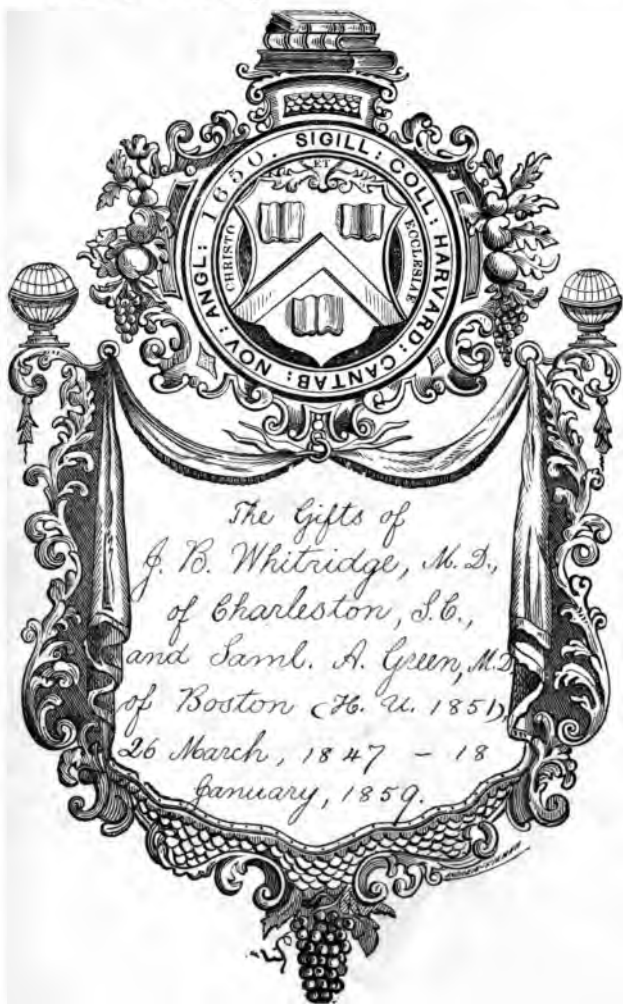 SIGILL : COLL : HARVARD : CANTAB : NOV : ANGL : 1650.
CHRISTO
ET
ECCLESIAE
The Gifts of
J. B. Whitridge, M. D.,
of Charleston, S. C.,
and Saml. A. Green, M. D.
of Boston (H. U. 1851),
26 March, 1847 – 18
January, 1859.